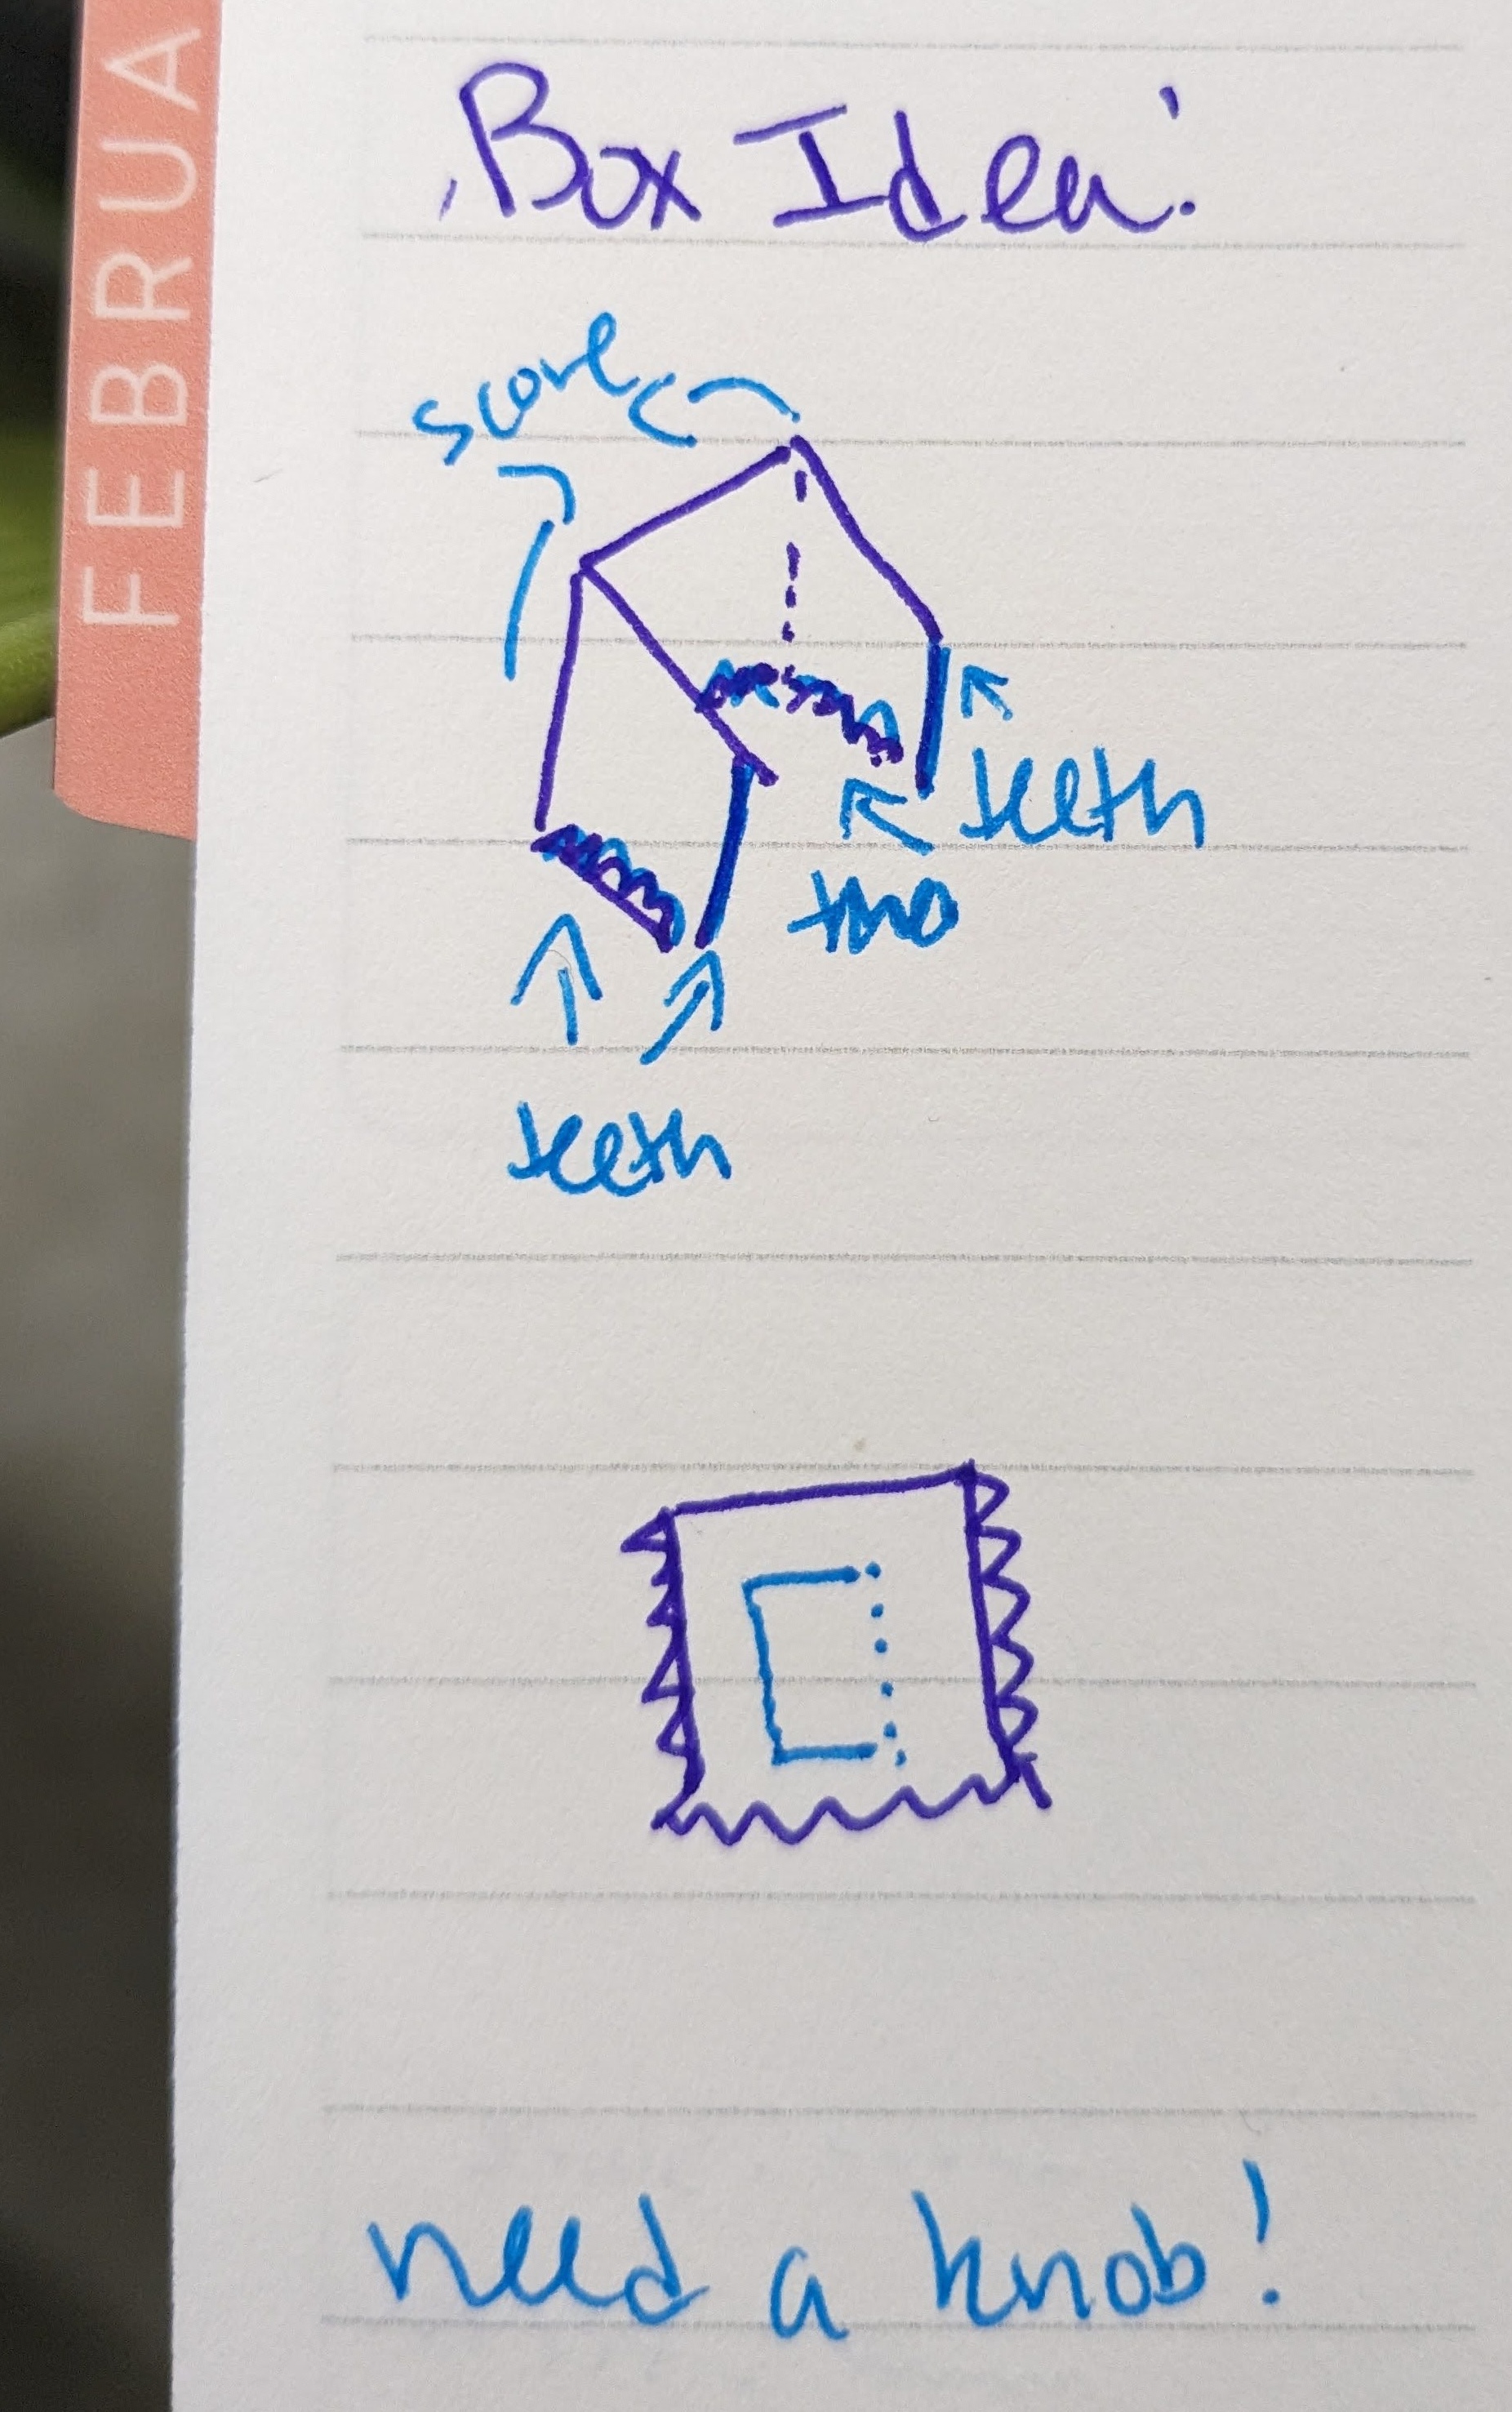 FEBRUA
Box Idea:
score
teeth
teeth
need a knob!